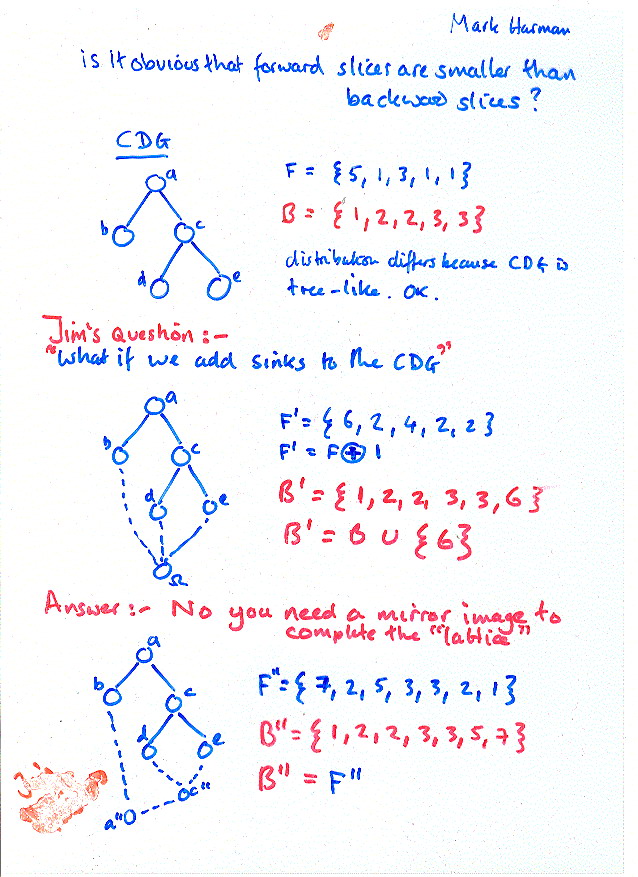 Mark Harman
is it obvious that forward slices are smaller than
backward slices?
CDG
a
b
c
d
e
F = {5, 1, 3, 1, 1}
B = {1, 2, 2, 3, 3}
distribution differs because CDG is
tree-like. OK.
Jim's Question :-
"What if we add sinks to the CDG"
a
b
c
d
e
Ω
F' = {6, 2, 4, 2, 2}
F' = F ⊕ 1
B' = {1, 2, 2, 3, 3, 6}
B' = B ∪ {6}
Answer :- No you need a mirror image to
complete the "lattice"
a
b
c
d
e
c"
a"
F" = {7, 2, 5, 3, 3, 2, 1}
B" = {1, 2, 2, 3, 3, 5, 7}
B" = F"